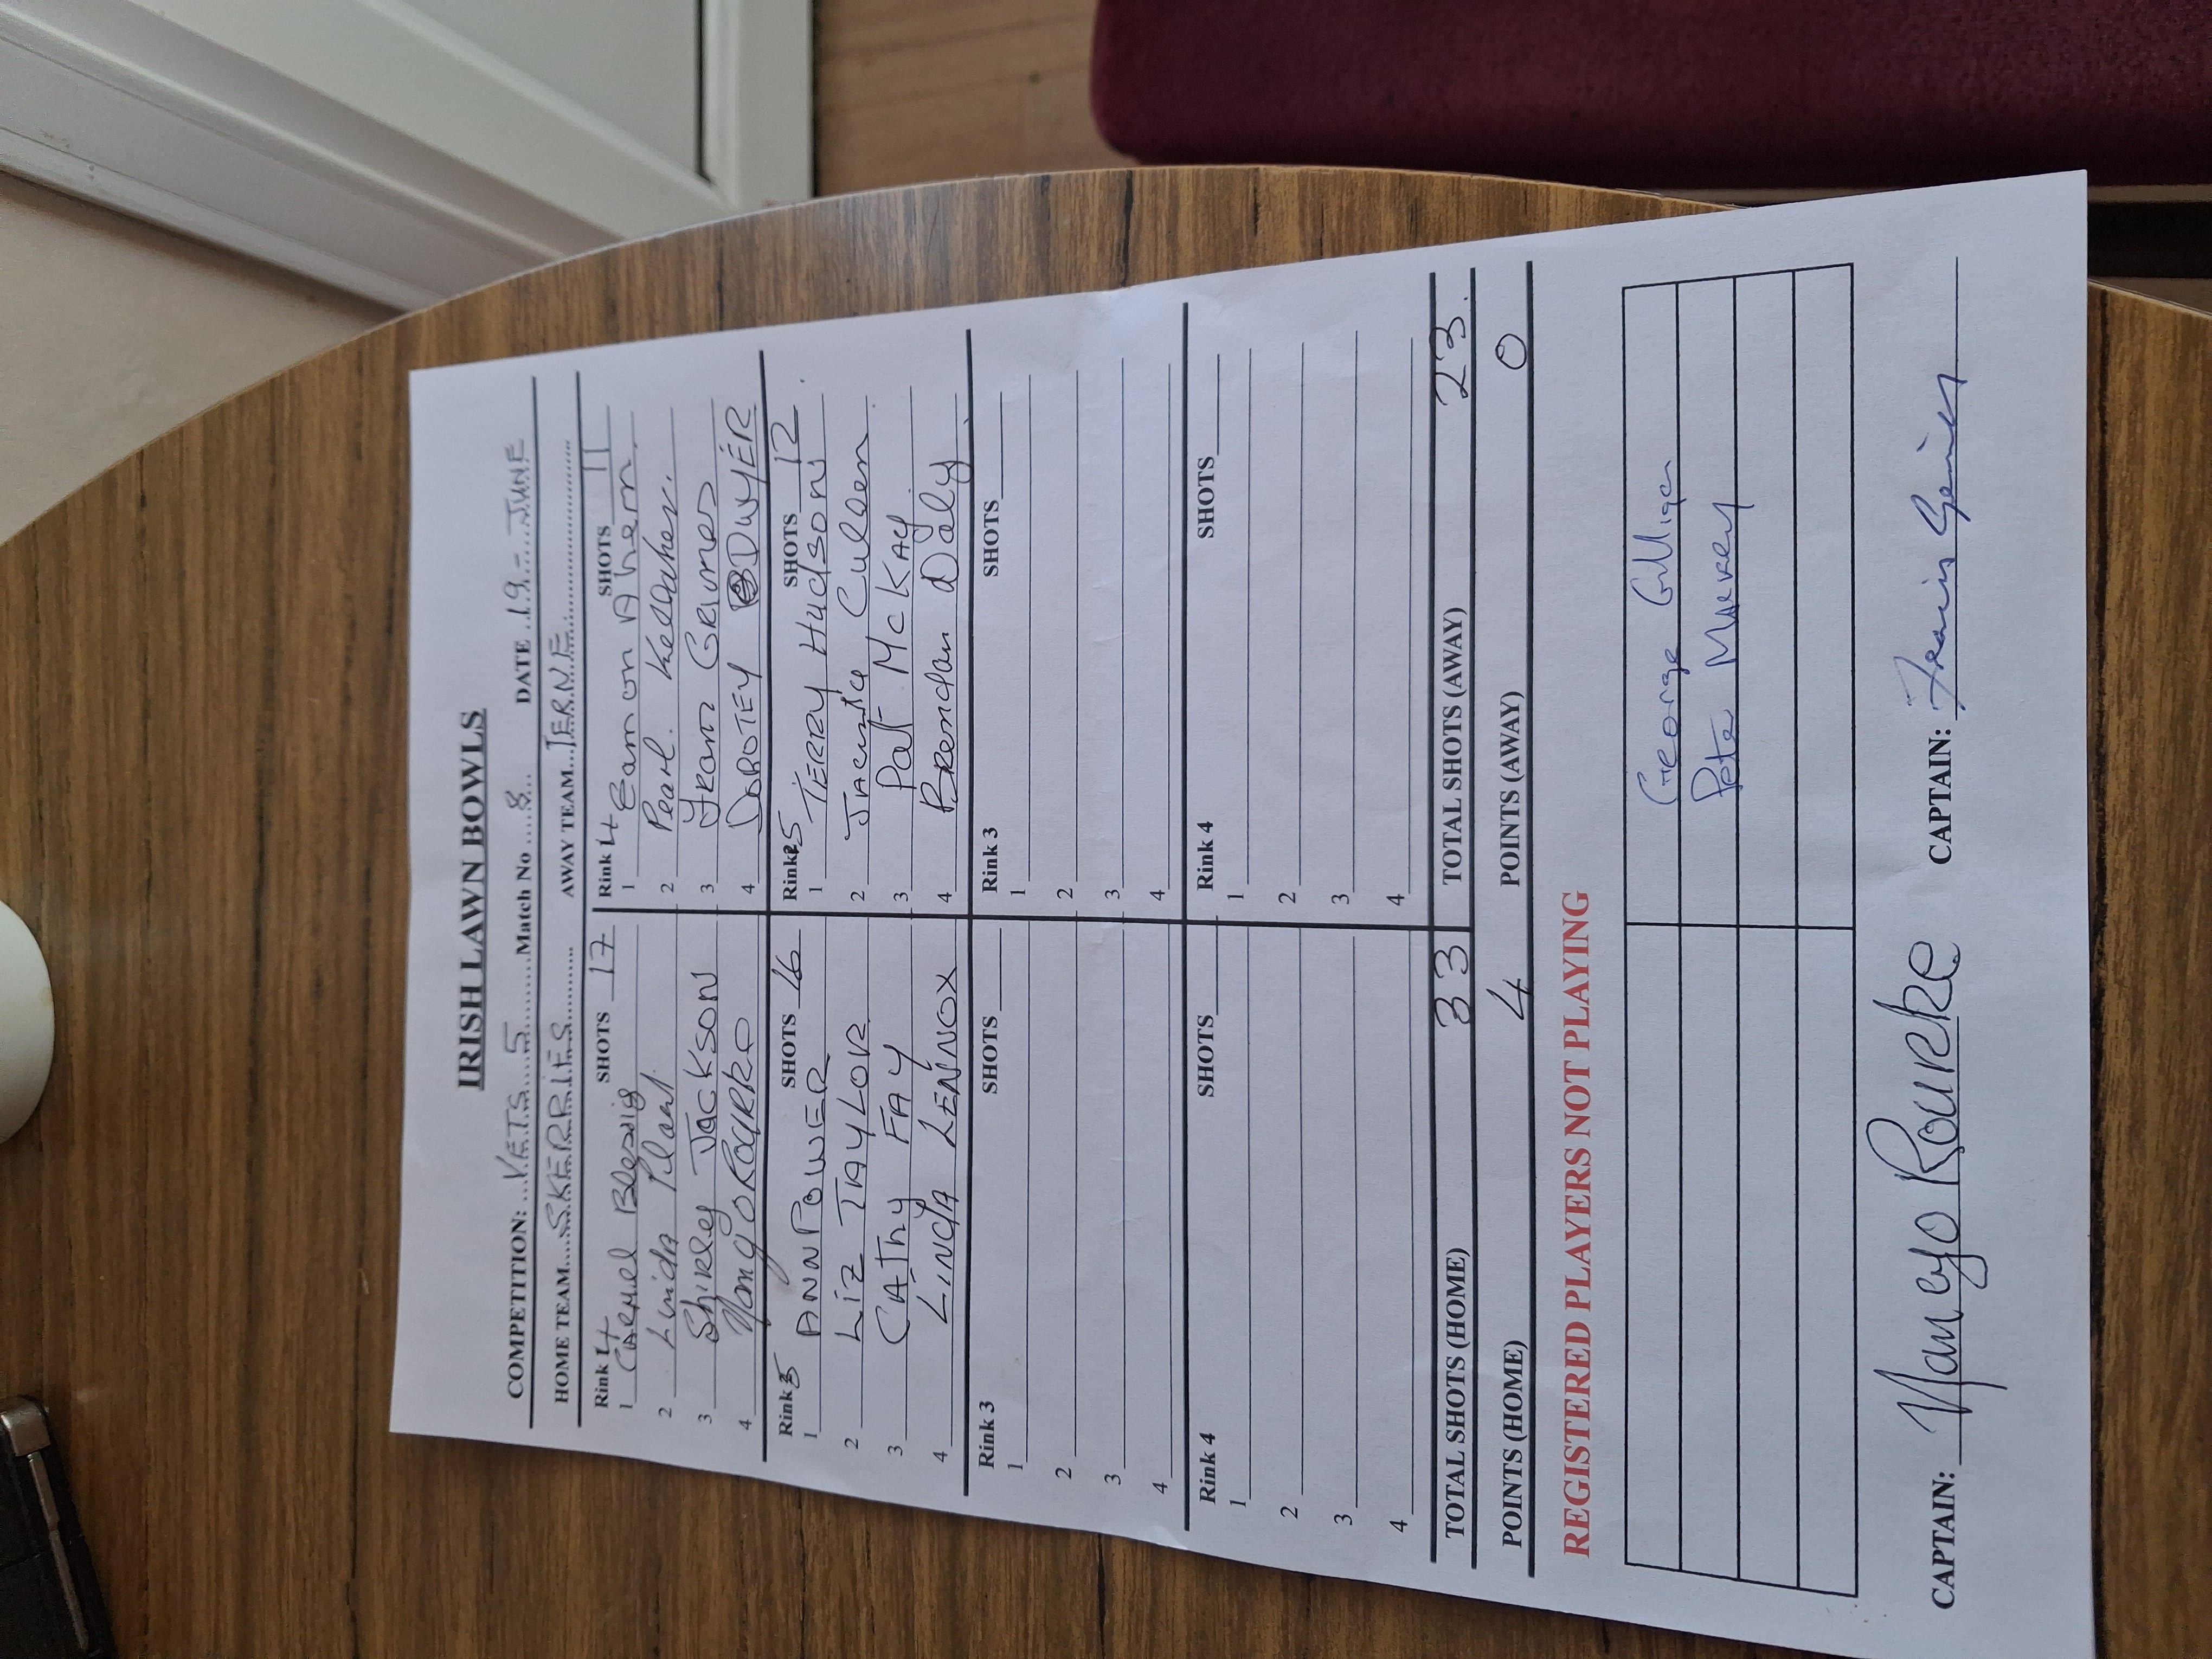 IRISH LAWN BOWLS
COMPETITION: VETS 5 Match No 8 DATE 19 - JUNE
HOME TEAM SKERRIES AWAY TEAM IERNE
Rink 4 SHOTS 17 Rink 4 SHOTS 11
1 Carmel Blessig 1 Eamon Ahern
2 Linda 2 Pearl Kellaher
3 Shirley JACKSON 3 GRIMES
4 Nancy O ROURKE 4 DOROTEY O DWYER
Rink 5 SHOTS 16 Rink 5 SHOTS 12
1 ANN POWER 1 TERRY HudSON
2 LIZ TAYLOR 2 Jacinta Cullen
3 CATHY FAY 3 Pat McKay
4 LINDA LENNOX 4 Brendan Daly
Rink 3 SHOTS Rink 3 SHOTS
1 1
2 2
3 3
4 4
Rink 4 SHOTS Rink 4 SHOTS
1 1
2 2
3 3
4 4
TOTAL SHOTS (HOME) 33 TOTAL SHOTS (AWAY) 23
POINTS (HOME) 4 POINTS (AWAY) 0
REGISTERED PLAYERS NOT PLAYING
George Gilligan
Peter
CAPTAIN: Nancy O Rourke CAPTAIN: